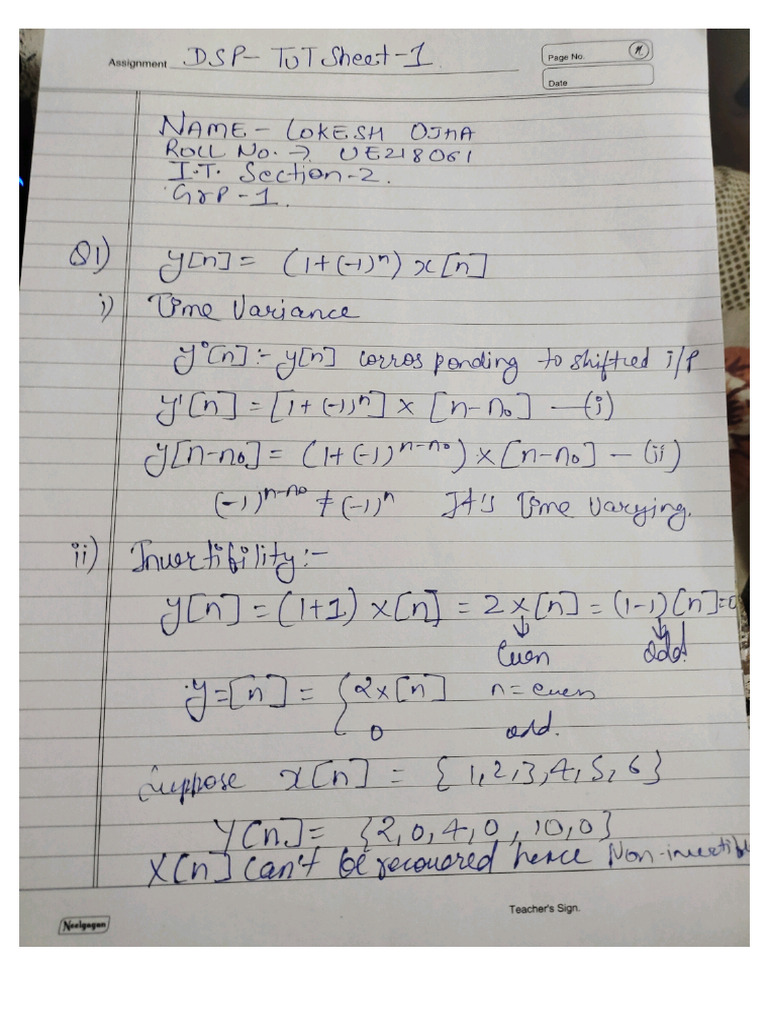 Assignment DSP- TUT Sheet-1
Page No.
Date
NAME - LOKESH OJHA
ROLL No. → UE218061
I.T. Section-2.
Grp-1.
Q1) y[n] = (1+(-1)ⁿ) x[n]
i) Time Variance
y'[n] :- y[n] corrosponding to shifted i/p
y'[n] = [1+(-1)ⁿ] x [n-n₀] —(i)
y[n-n₀] = (1+(-1)ⁿ⁻ⁿ⁰) x[n-n₀] — (ii)
(-1)ⁿ⁻ⁿ⁰ ≠ (-1)ⁿ It's Time varying.
ii) Invertibility:-
y[n] = (1+1) x[n] = 2x[n] = (1-1)[n]=0
↓ ↓
Even odd.
y=[n] = { 2x[n] n = even
0 odd.
Suppose x[n] = {1,2,3,4,5,6}
Y[n] = {2,0,4,0,10,0}
X[n] can't be recovered hence Non-invertible
Teacher's Sign.
Neelgagan